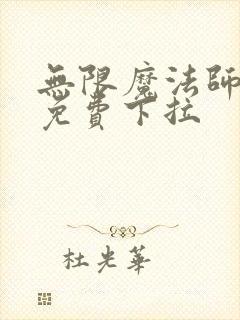 無限魔法師
免費下拉
杜光華